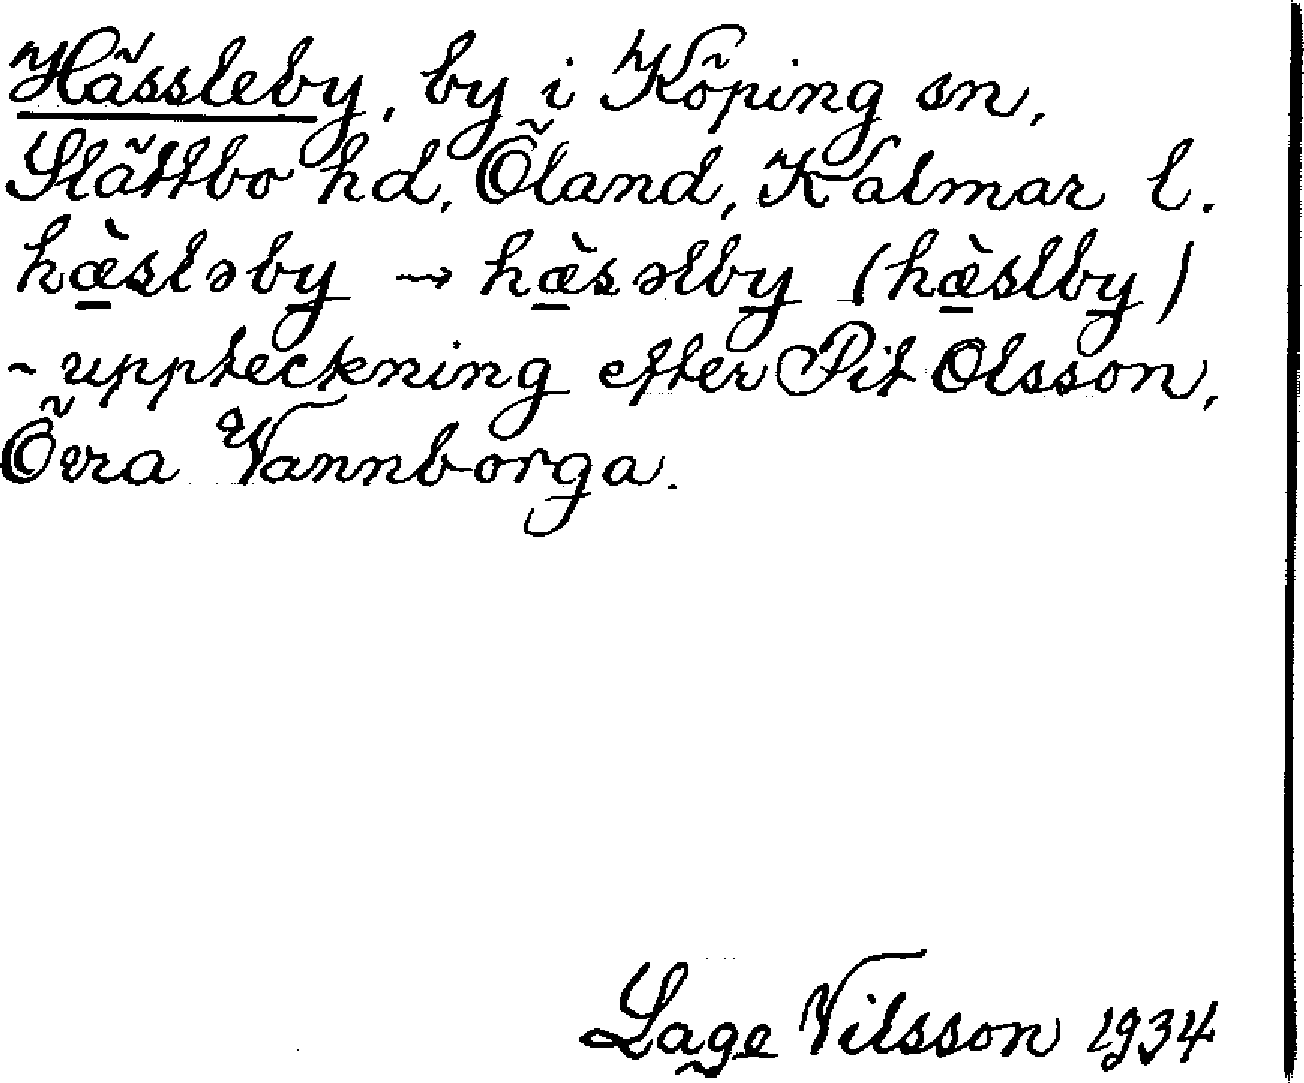 Hässleby, by i Köping sn,
Slättbo hd, Öland, Kalmar l.
hæ̀sləby → hæ̀səlby (hæ̀slby)
~ uppteckning efter Pit Olsson,
Övra Vannborga.
Lage Nilsson 1934